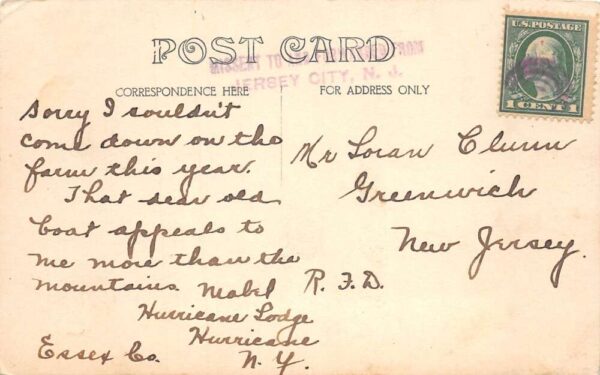 POST CARD
MISSENT TO AND FORWARDED FROM
JERSEY CITY, N. J.
U.S. POSTAGE
1 CENT 1
CORRESPONDENCE HERE
FOR ADDRESS ONLY
Sorry I couldn't
come down on the
farm this year.
That dear old
boat appeals to
me more than the
mountains. Mabel
Hurricane Lodge
Hurricane
Essex Co. N.Y.
Mr Loran Clunn
Greenwich
New Jersey.
R. F. D.